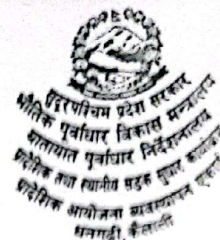 सुदूरपश्चिम प्रदेश सरकार
भौतिक पूर्वाधार विकास मन्त्रालय
यातायात पूर्वाधार निर्देशनालय
प्रादेशिक तथा स्थानीय सडक सुधार कार्यक्रम
प्रादेशिक आयोजना व्यवस्थापन
धनगढी, कैलाली